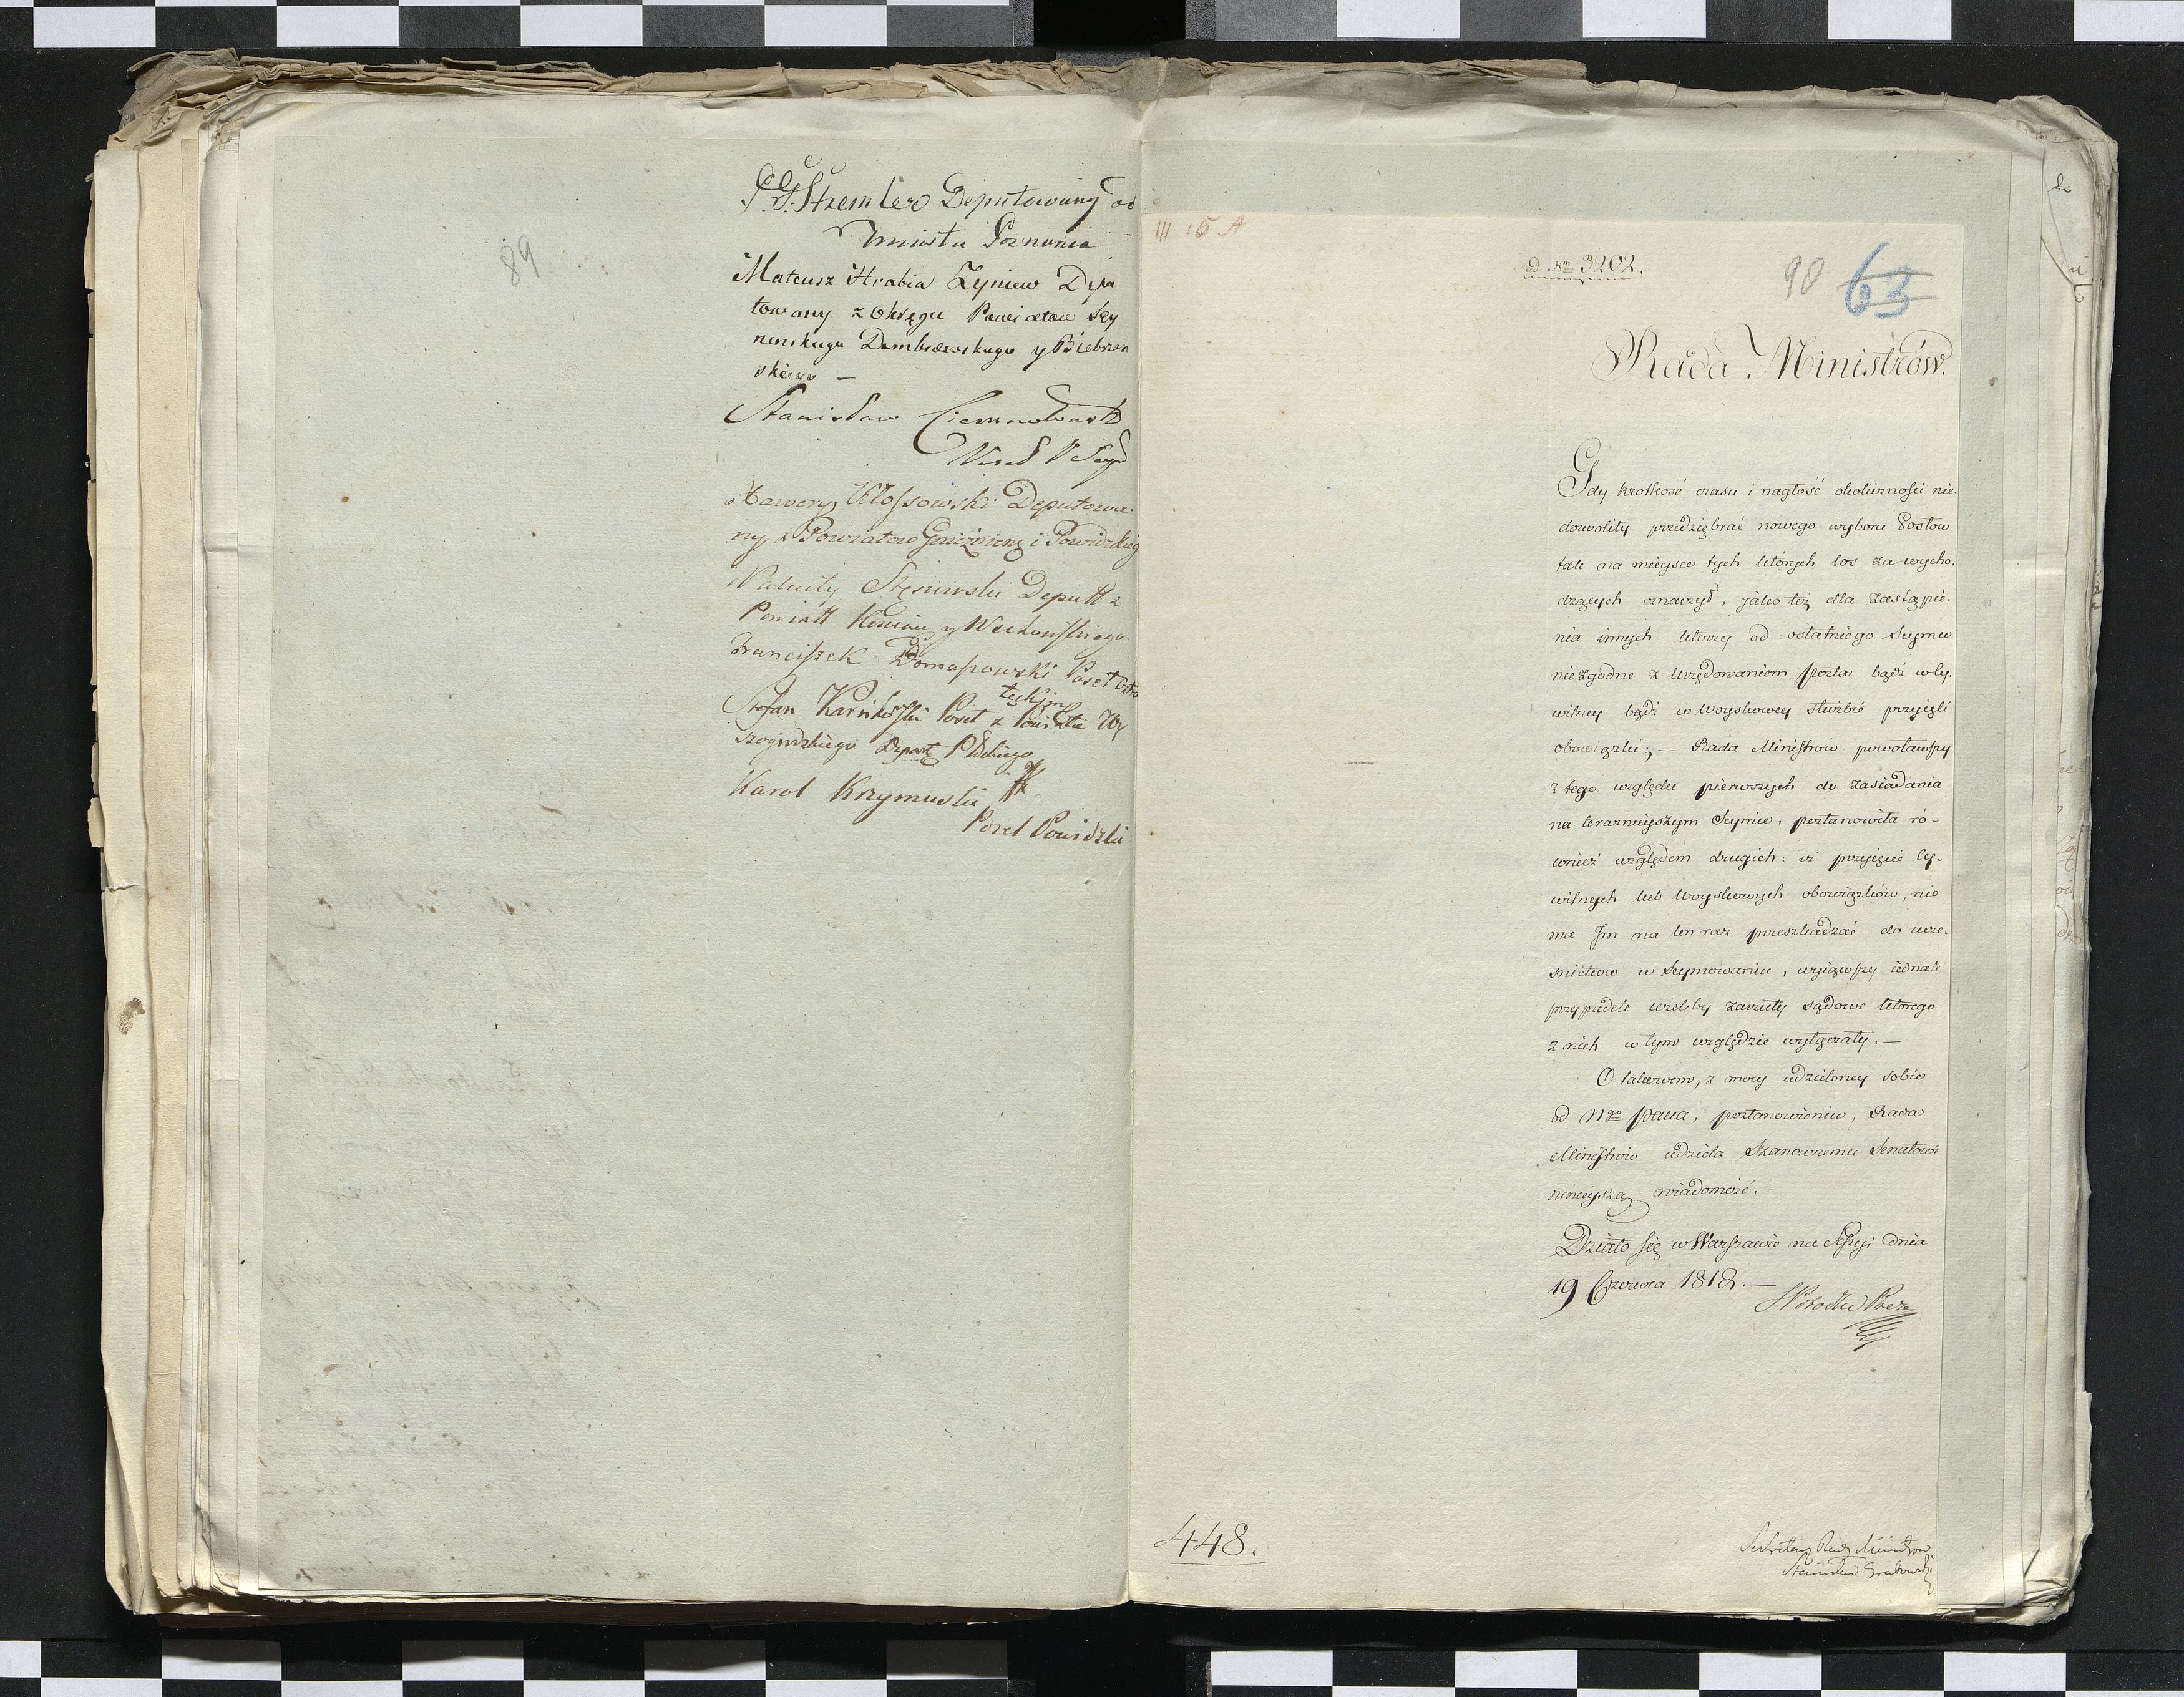 89
P. G. Stremler Deputowany od
miasta Poznania
Mateusz Hrabia Zyniew Depu
towany z Okręgu Powiatow Sey
nenskugo Dambrowskugo y Biebrzan
skiego —
Stanisław
Xawery Kłossowski Deputowa-
ny z Powiatow Gnieżnieng i Powidzkieg
Walenty Deputt z
Powiatt y
Franciszek Domaszowski Poset
Stefan Karnkoski Poset z Powiatu Wy
szogrodzkiego Depart Płłckiego
Karol Krzymuski
Poset Powidzki
III 15 A
ad Nrm 3202.
90 63
Rada Ministrów.
Gdy krotkość czasu i nagłość okoliczności nie-
dozwoliły przedsiębrać nowego wyboru Posłow
tak na mieysce tych których los za wycho-
dzących oznaczył, jako też dla zastąpie-
nia innych którzy od ostatniego Seymu
niezgodne z Urzędowaniem posła bądź w Cy-
wilney bądź w Woyskowey służbie przyięli
obowiązki; — Rada Ministrów powoławszy
z tego względu pierwszych do zasiadania
na teraznieyszym Seymie, postanowiła ró-
wnież względem drugich: iż przyięcie Cy-
wilnych lub Woyskowych obowiązków, nie
ma Im na ten raz przeszkadzać do ucze-
snictwa w Seymowaniu, wyiąwszy iednak
przypadek ieżeliby zarzuty sądowe którego
z nich w tym względzie wyłączały. —
O takowem, z mocy udzieloney sobie
od Ngo Pana, postanowieniu, Rada
Ministrów udziela Szanownemu Senatowi
ninieyszą wiadomość.
Działo się w Warszawie na Sessyi dnia
19 Czerwca 1812. —
S Potocki Prezes
448.
Sekretarz Rady Ministrow
Stanisław Grabowski